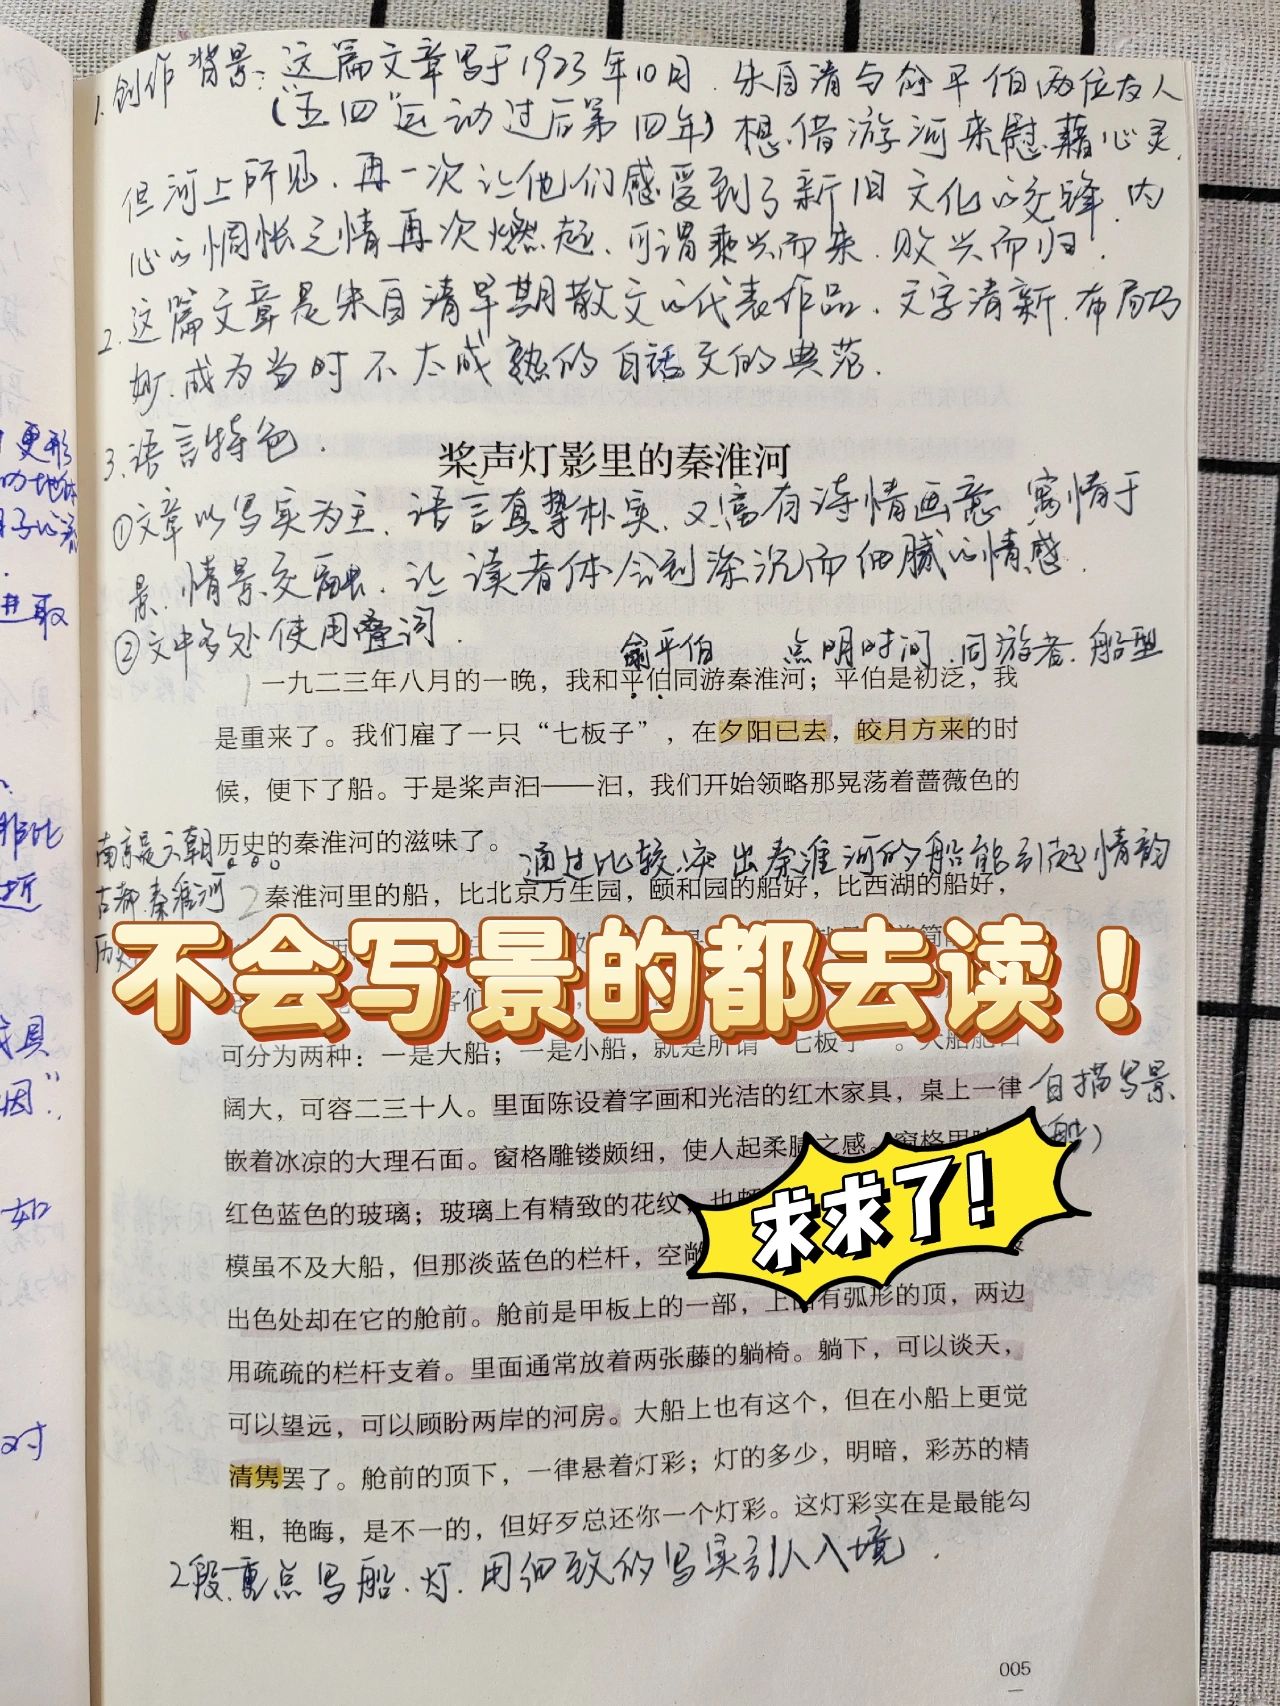 1.创作背景:这篇文章写于1923年10月.朱自清与俞平伯两位友人
(“五四”运动过后第四年)想借游河来慰藉心灵.
但河上所见.再一次让他们感受到了新旧文化的交锋.内
心的惆怅之情再次燃起.可谓乘兴而来.败兴而归.
2.这篇文章是朱自清早期散文的代表作品.文字清新.布局巧
妙.成为当时不太成熟的白话文的典范.
3.语言特色.
桨声灯影里的秦淮河
①文章以写实为主.语言真挚朴实.又富有诗情画意 寓情于
景.情景交融.让读者体会到深沉而细腻的情感.
②文中多处使用叠词.
俞平伯 点明时间.同游者.船型
1一九二三年八月的一晚，我和平伯同游秦淮河；平伯是初泛，我
是重来了。我们雇了一只“七板子”，在夕阳已去，皎月方来的时
候，便下了船。于是桨声汩——汩，我们开始领略那晃荡着蔷薇色的
历史的秦淮河的滋味了。
南京是六朝
古都.秦淮河
通过比较.突出秦淮河的船能引起情韵
2秦淮河里的船，比北京万生园，颐和园的船好，比西湖的船好，
不会写景的都去读！
可分为两种：一是大船；一是小船，就是所谓“七板子”。大船舱口
阔大，可容二三十人。里面陈设着字画和光洁的红木家具，桌上一律
白描写景
嵌着冰凉的大理石面。窗格雕镂颇细，使人起柔腻之感。窗格里
红色蓝色的玻璃；玻璃上有精致的花纹，也
求求了！
模虽不及大船，但那淡蓝色的栏杆，空敞
出色处却在它的舱前。舱前是甲板上的一部，上面有弧形的顶，两边
用疏疏的栏杆支着。里面通常放着两张藤的躺椅。躺下，可以谈天，
可以望远，可以顾盼两岸的河房。大船上也有这个，但在小船上更觉
清隽罢了。舱前的顶下，一律悬着灯彩；灯的多少，明暗，彩苏的精
粗，艳晦，是不一的，但好歹总还你一个灯彩。这灯彩实在是最能勾
2段.重点写船.灯.用细致的写实引人入境.
005
更形
进取
如
对